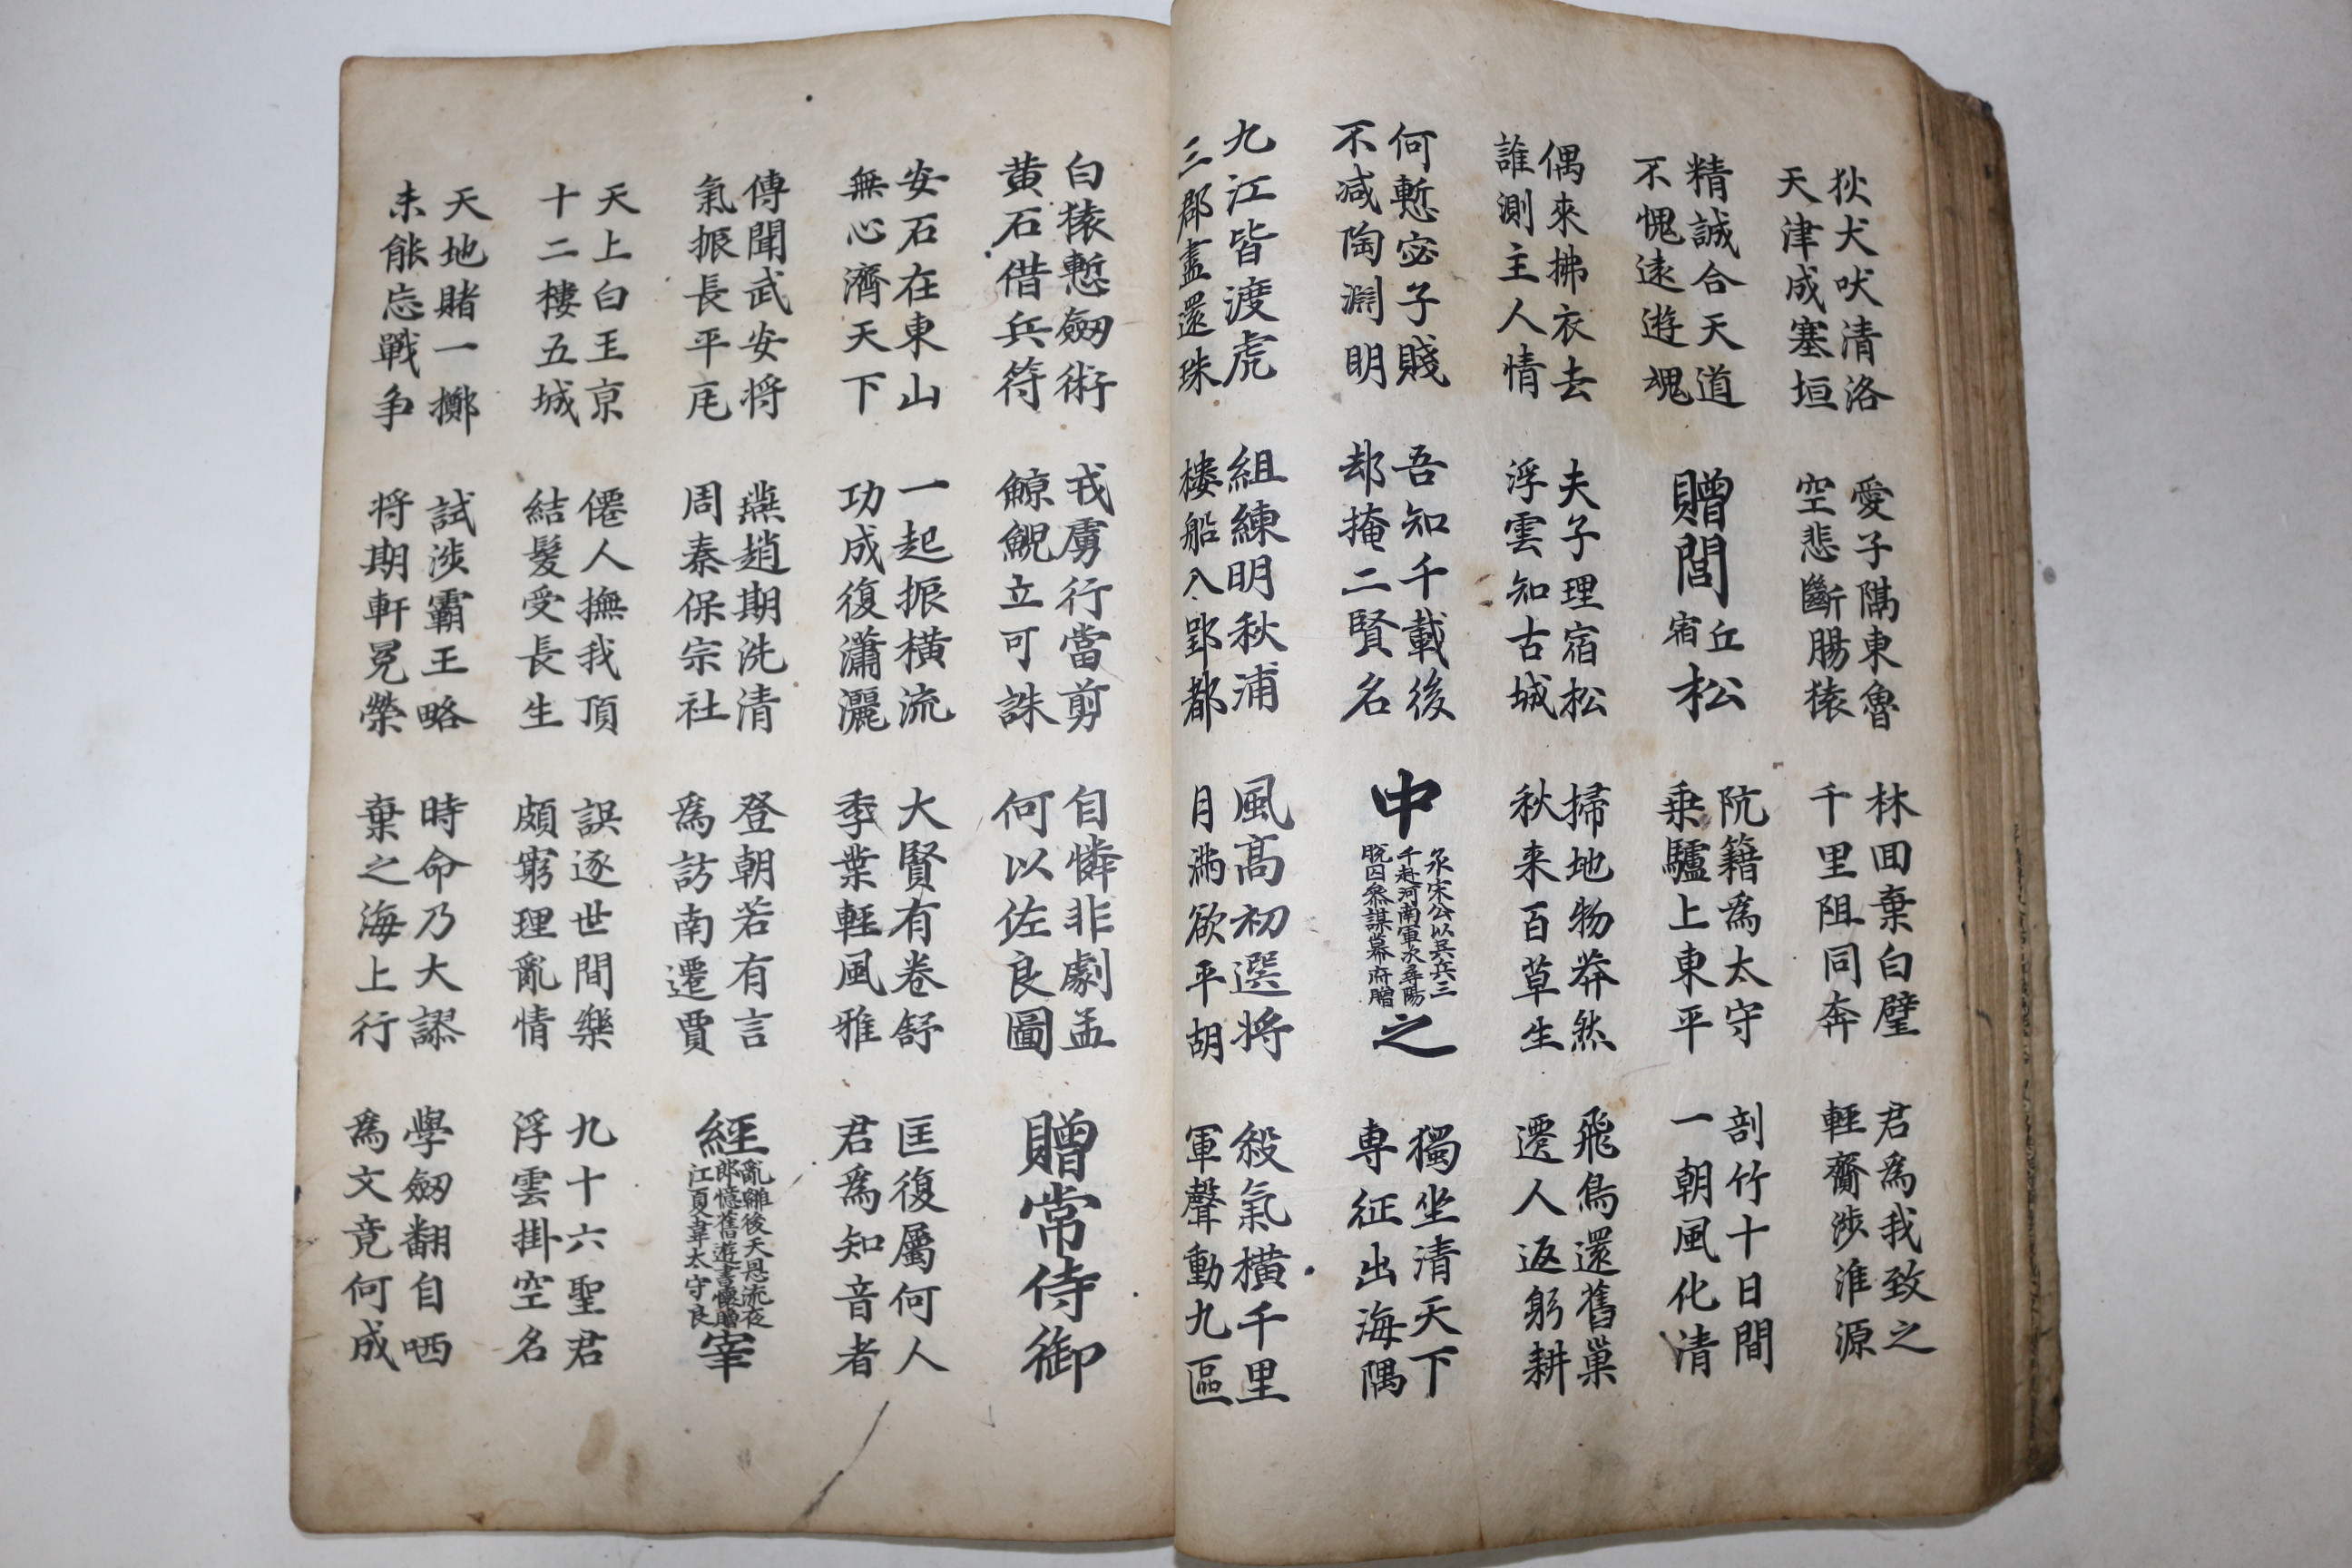 狄犬吠清洛
天津成塞垣
愛子隔東魯
空悲斷腸猿
林回棄白璧
千里阻同奔
君為我致之
輕齎涉淮源
精誠合天道
不愧遠遊魂
贈閭丘宿松
阮籍為太守
乗驢上東平
剖竹十日間
一朝風化清
偶來拂衣去
誰測主人情
夫子理宿松
浮雲知古城
掃地物莽然
秋来百草生
飛鳥還舊巢
遷人返躬耕
何慙宓子賤
不减陶淵明
吾知千載後
却掩二賢名
中
丞宋公以吳兵三
千赴河南軍次尋陽
脫囚參謀幕府贈
之
獨坐清天下
專征出海隅
九江皆渡虎
三郡盡還珠
組練明秋浦
樓船入郢都
風高初選将
月滿欲平胡
殺氣橫千里
軍聲動九區
白猿慙劒術
黄石借兵符
戎虜行當剪
鯨鯢立可誅
自憐非劇孟
何以佐良圖
贈常侍御
安石在東山
無心濟天下
一起振橫流
功成復瀟灑
大賢有卷舒
季葉輕風雅
匡復屬何人
君為知音者
傳聞武安将
氣振長平瓦
燕趙期洗清
周秦保宗社
登朝若有言
為訪南遷賈
經
亂離後天恩流夜
郎憶舊遊書懷贈
江夏韋太守良
宰
天上白玉京
十二樓五城
僊人撫我頂
結髮受長生
誤逐世間樂
頗窮理亂情
九十六聖君
浮雲掛空名
天地賭一擲
未能忘戰争
試涉霸王略
将期軒冕榮
時命乃大謬
棄之海上行
學劒翻自哂
為文竟何成